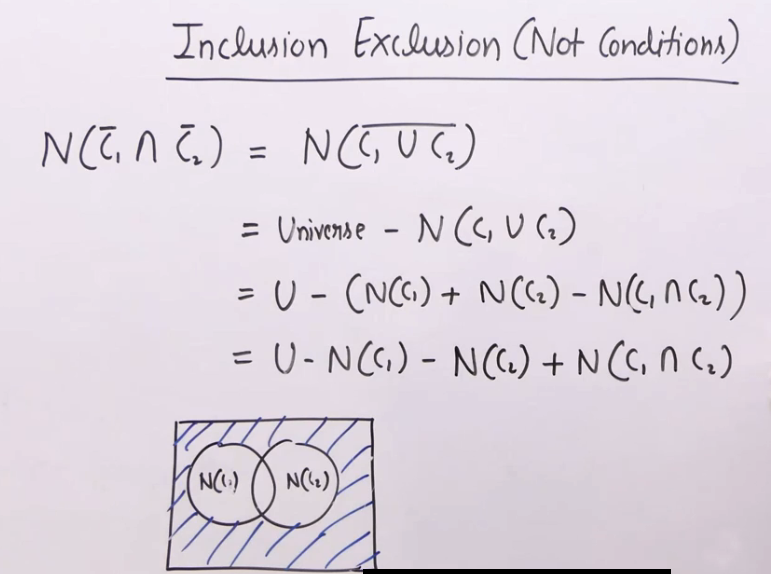 Inclusion Exclusion (Not Conditions)
N(C̄₁ ∩ C̄₂) = N(C̅₁̅ ̅∪̅ ̅C̅₂)
= Universe - N(C₁ ∪ C₂)
= U - (N(C₁) + N(C₂) - N(C₁ ∩ C₂))
= U - N(C₁) - N(C₂) + N(C₁ ∩ C₂)
N(C₁) N(C₂)